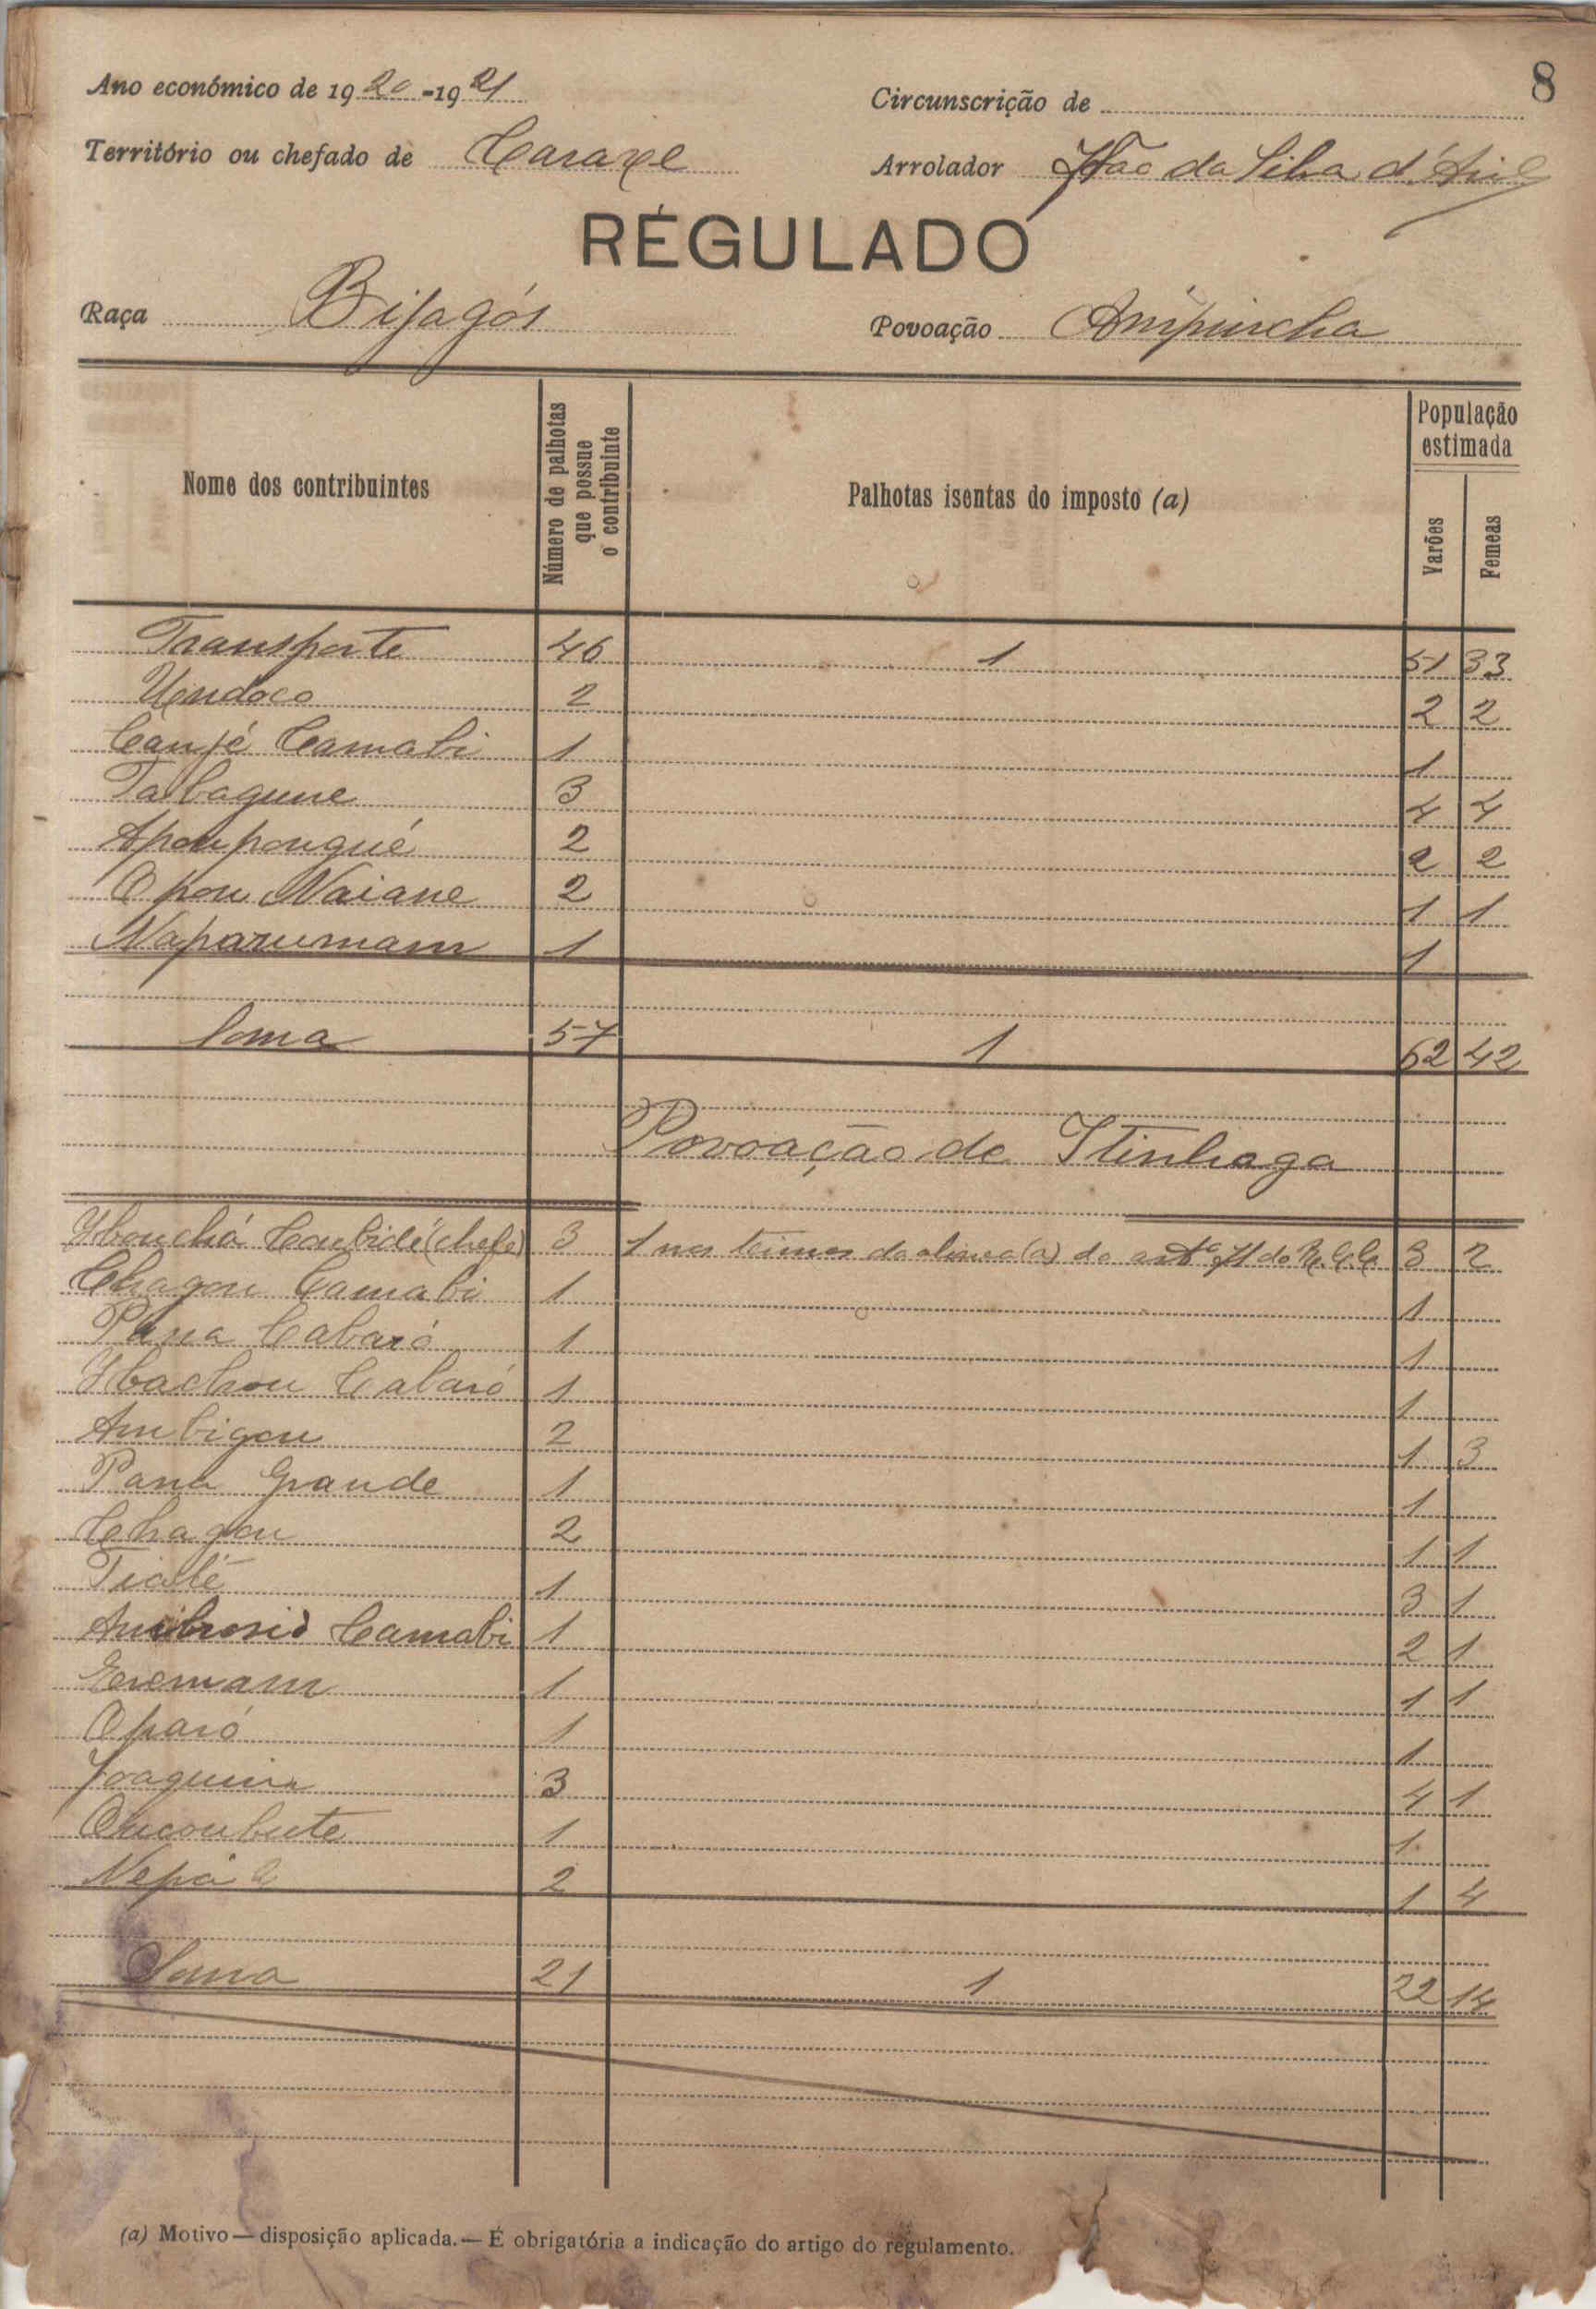 8
Ano económico de 1920-1921 Circunscrição de
Território ou chefado de Caraxe Arrolador João da Silva d'
RÉGULADO
Raça Bijagós Povoação Anipincha
Nome dos contribuintes Número de palhotas que possue o contribuinte Palhotas isentas do imposto (a) População estimada Varões Femeas
Transporte 46 1 51 33
Undoco 2 2 2
Canjé Camabi 1 1
Tabagune 3 4 4
Apoupougué 2 2 2
Opou Naiane 2 1 1
Naparumam 1 1
Soma 57 1 62 42
Povoação de Itinhaga
Ibouchá Coubidé (chefe) 3 1 nos termos da alinea (a) do artº 71 do 3 2
Chagou Camabi 1 1
Pana Cabaró 1 1
Ibachou Cabaró 1 1
Ambigou 2 1 3
Pana Grande 1 1
Chagou 2 1 1
Tialé 1 3 1
Ambrosio Camabi 1 2 1
Eremam 1 1 1
Oparó 1 1
Joaquim 3 4 1
Oucoubute 1 1
Nepá 2 1 4
Soma 21 1 22 14
(a) Motivo — disposição aplicada. — É obrigatória a indicação do artigo do regulamento.